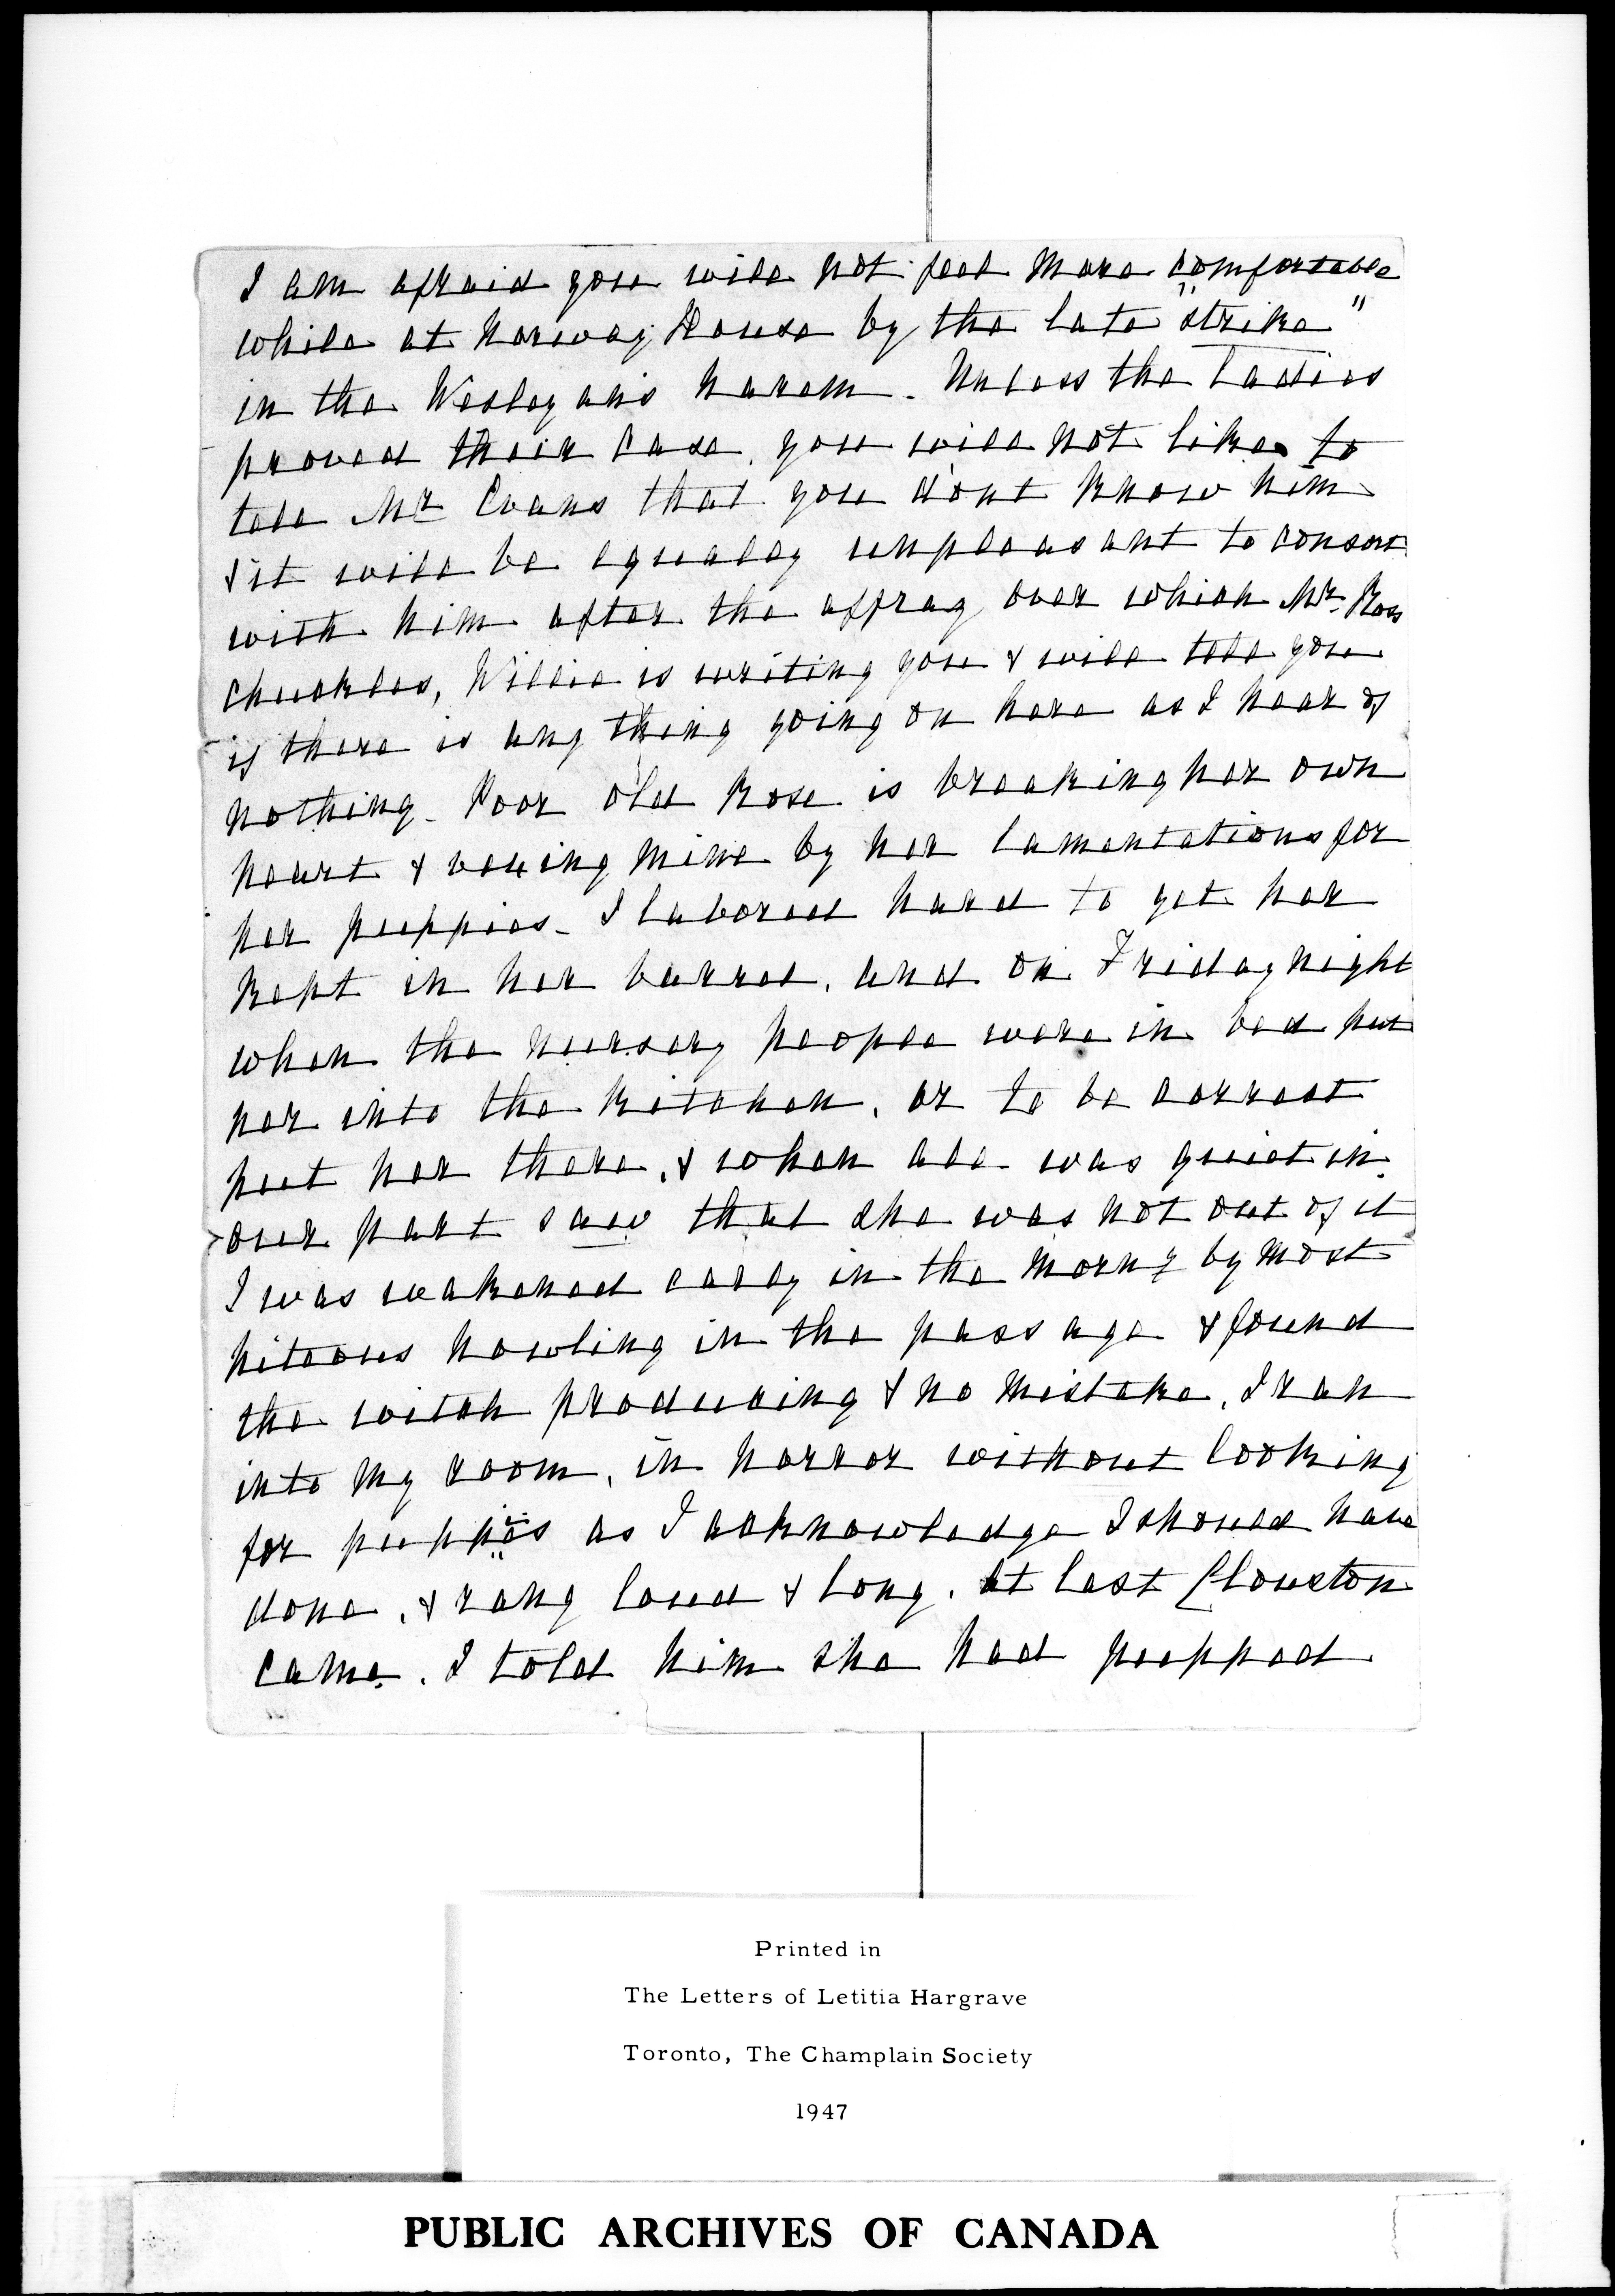 I am afraid you will not feel more comfortable
while at Norway House by the late "strike"
in the Wesleyans harem. Unless the ladies
proved their case, you will not like to
tell Mr Evans that you d'ont know him
& it will be equally unpleasant to consort
with him after the affray over which Mr. Ross
chuckles, Willie is writing you & will tell you
if there is any thing going on here as I hear of
nothing. Poor old Rose is breaking her own
heart & vexing mine by her lamentations for
her puppies. I labored hard to get her
kept in her barrel, and on Friday night
when the nursery people were in bed put
her into the kitchen, or to be correct
put her there, & when all was quiet in
our part saw that she was not out of it
I was wakened early in the morng by most
piteous howling in the passage & found
the witch producing & no mistake, I ran
into my room, in horror without looking
for puppies as I acknowledge I should have
done, & rang loud & long. At last Clouston
came. I told him she had pupped
Printed in
The Letters of Letitia Hargrave
Toronto, The Champlain Society
1947
PUBLIC ARCHIVES OF CANADA